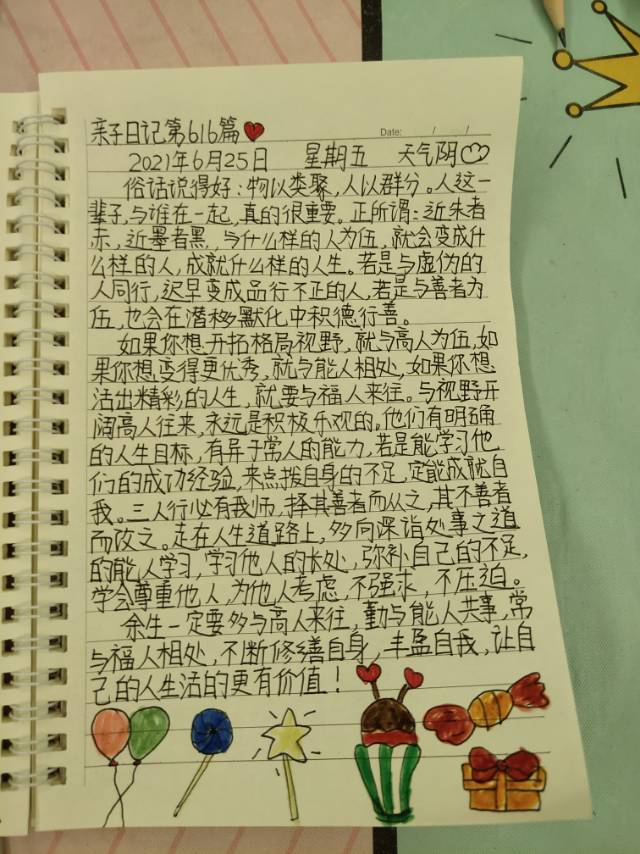 Date: / /
亲子日记第616篇
2021年6月25日 星期五 天气阴
俗话说得好：物以类聚，人以群分。人这一
辈子，与谁在一起，真的很重要。正所谓：近朱者
赤，近墨者黑，与什么样的人为伍，就会变成什
么样的人，成就什么样的人生。若是与虚伪的
人同行，迟早变成品行不正的人，若是与善者为
伍，也会在潜移默化中积德行善。
如果你想开拓格局视野，就与高人为伍，如
果你想变得更优秀，就与能人相处，如果你想
活出精彩的人生，就要与福人来往。与视野开
阔高人往来，永远是积极乐观的。他们有明确
的人生目标，有异于常人的能力，若是能学习他
们的成功经验，来点拨自身的不足，定能成就自
我。三人行必有我师，择其善者而从之，其不善者
而改之。走在人生道路上，多向深谙处事之道
的能人学习，学习他人的长处，弥补自己的不足，
学会尊重他人，为他人考虑，不强求，不压迫。
余生一定要多与高人来往，勤与能人共事，常
与福人相处，不断修缮自身，丰盈自我，让自
己的人生活的更有价值！